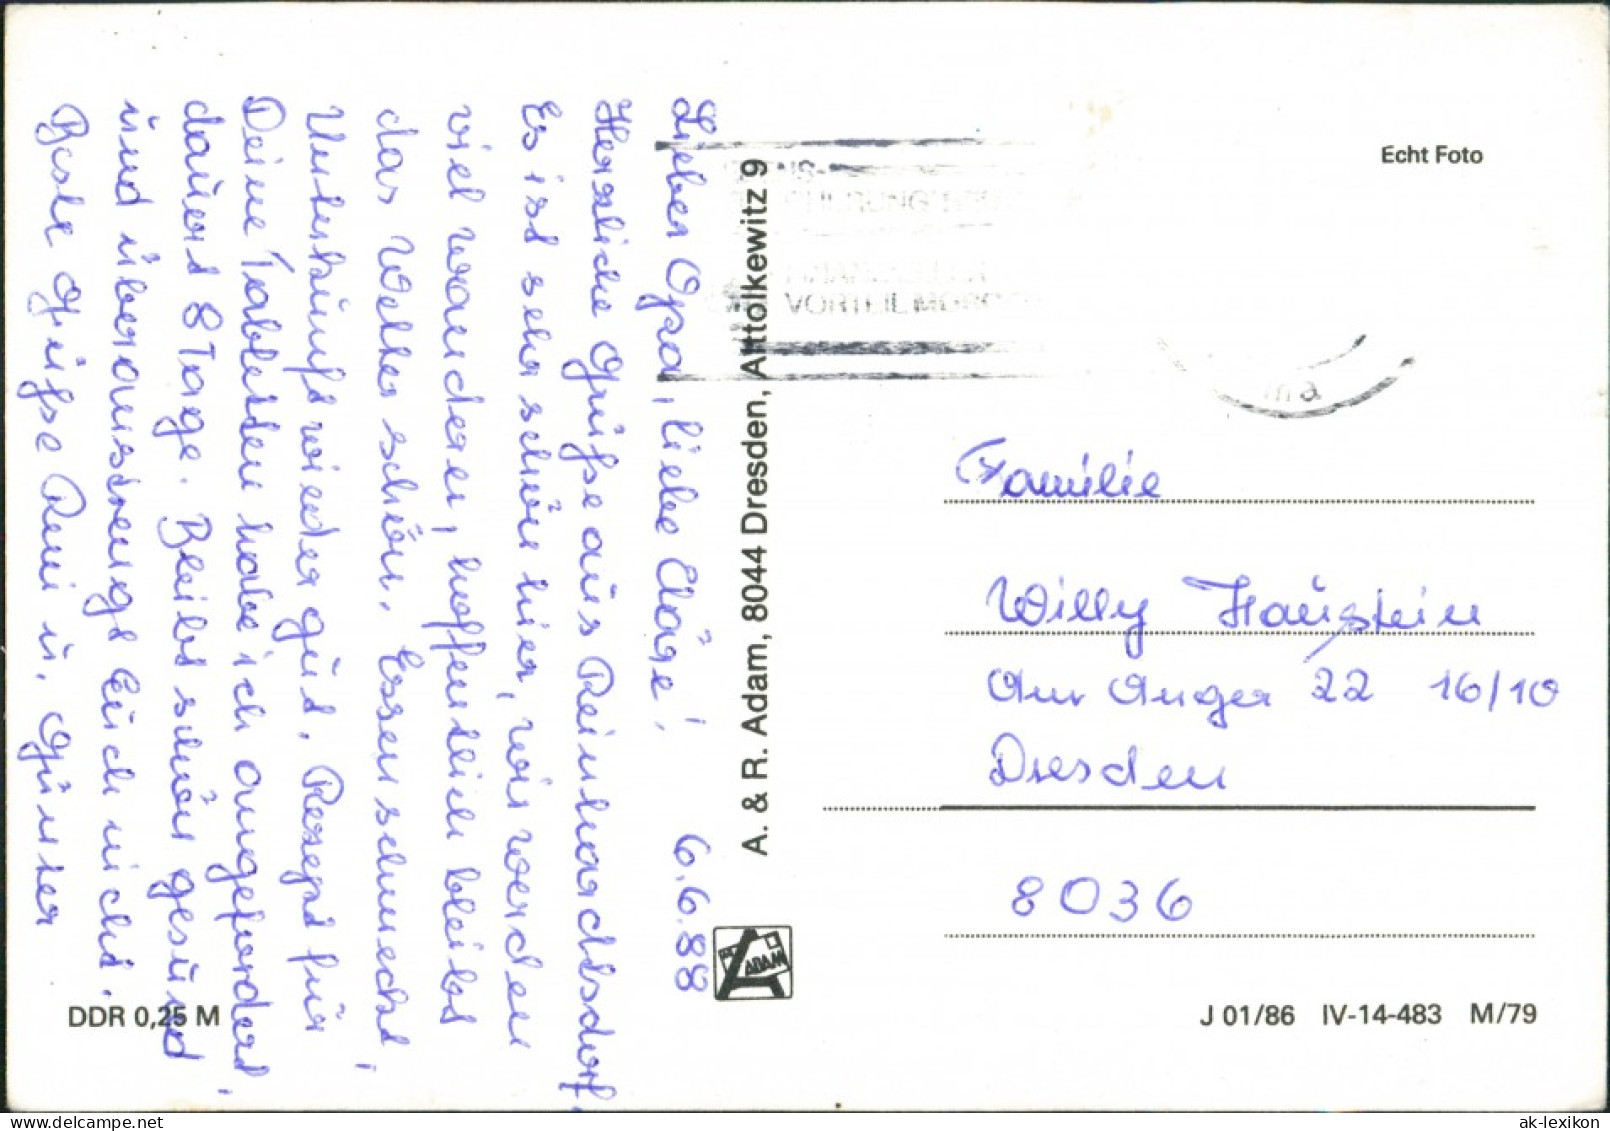 Lieber Opa, liebe Cläre! 6.6.88
Herzliche Grüße aus Reinhardtsdorf.
Es ist sehr schön hier, wir werden
viel wandern, hoffentlich bleibt
das Wetter schön. Essen schmeckt,
Unterkunft wieder gut. Rezept für
Deine Tabletten habe ich angefordert,
dauert 8 Tage. Bleibt schön gesund
und überanstrengt Euch nicht.
Beste Grüße Rmi u. Günter
DDR 0,25 M
A. & R. Adam, 8044 Dresden, Alttolkewitz 9
ADAM
VORTEIL
Echt Foto
Familie
Willy Haustein
Am Anger 22 16/10
Dresden
8036
J 01/86 IV-14-483 M/79
ak-lexikon